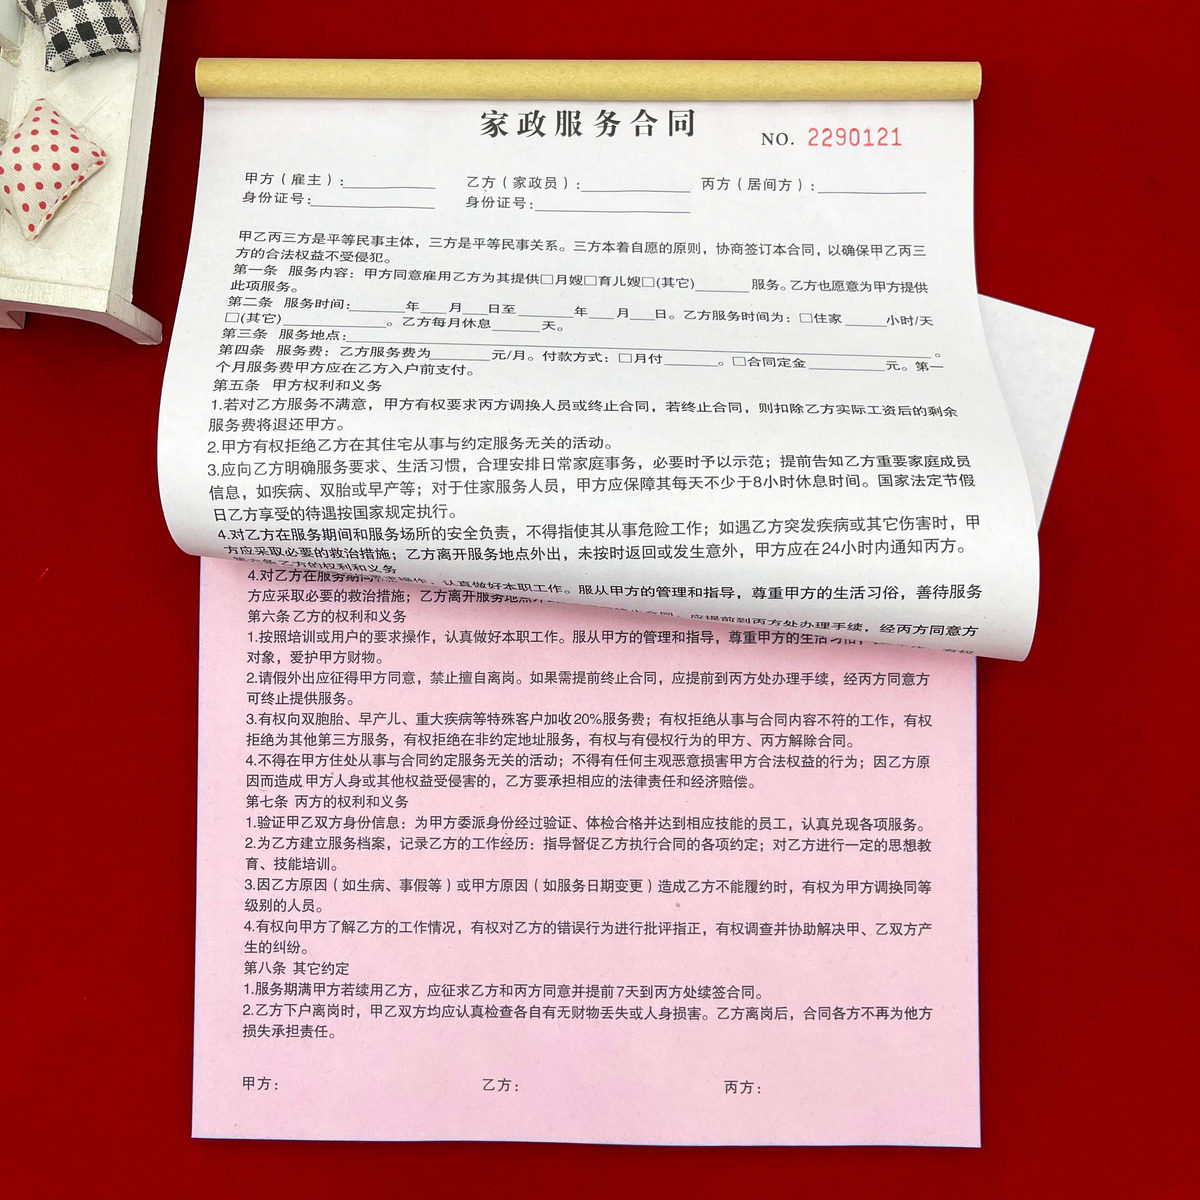 家政服务合同
NO. 2290121
甲方（雇主）：__________ 乙方（家政员）：__________ 丙方（居间方）：__________
身份证号：__________ 身份证号：__________
甲乙丙三方是平等民事主体，三方是平等民事关系。三方本着自愿的原则，协商签订本合同，以确保甲乙丙三
方的合法权益不受侵犯。
第一条 服务内容：甲方同意雇用乙方为其提供□月嫂□育儿嫂□(其它)______服务。乙方也愿意为甲方提供
此项服务。
第二条 服务时间：______年____月____日至______年____月____日。乙方服务时间为：□住家____小时/天
□(其它)__________。乙方每月休息____天。
第三条 服务地点：__________。
第四条 服务费：乙方服务费为______元/月。付款方式：□月付______。□合同定金________元。第一
个月服务费甲方应在乙方入户前支付。
第五条 甲方权利和义务
1.若对乙方服务不满意，甲方有权要求丙方调换人员或终止合同，若终止合同，则扣除乙方实际工资后的剩余
服务费将退还甲方。
2.甲方有权拒绝乙方在其住宅从事与约定服务无关的活动。
3.应向乙方明确服务要求、生活习惯，合理安排日常家庭事务，必要时予以示范；提前告知乙方重要家庭成员
信息，如疾病、双胎或早产等；对于住家服务人员，甲方应保障其每天不少于8小时休息时间。国家法定节假
日乙方享受的待遇按国家规定执行。
4.对乙方在服务期间和服务场所的安全负责，不得指使其从事危险工作；如遇乙方突发疾病或其它伤害时，甲
方应采取必要的救治措施；乙方离开服务地点外出，未按时返回或发生意外，甲方应在24小时内通知丙方。
第六条乙方的权利和义务
操作，认真做好本职工作。服从甲方的管理和指导，尊重甲方的生活习俗，善待服务
终止合同，应提前到丙方处办理手续，经丙方同意方
4.对乙方在服务期间
方应采取必要的救治措施；乙方离开服务地点
第六条乙方的权利和义务
1.按照培训或用户的要求操作，认真做好本职工作。服从甲方的管理和指导，尊重甲方的生活习俗，
对象，爱护甲方财物。
2.请假外出应征得甲方同意，禁止擅自离岗。如果需提前终止合同，应提前到丙方处办理手续，经丙方同意方
可终止提供服务。
3.有权向双胞胎、早产儿、重大疾病等特殊客户加收20%服务费；有权拒绝从事与合同内容不符的工作，有权
拒绝为其他第三方服务，有权拒绝在非约定地址服务，有权与有侵权行为的甲方、丙方解除合同。
4.不得在甲方住处从事与合同约定服务无关的活动；不得有任何主观恶意损害甲方合法权益的行为；因乙方原
因而造成甲方人身或其他权益受侵害的，乙方要承担相应的法律责任和经济赔偿。
第七条 丙方的权利和义务
1.验证甲乙双方身份信息：为甲方委派身份经过验证、体检合格并达到相应技能的员工，认真兑现各项服务。
2.为乙方建立服务档案，记录乙方的工作经历：指导督促乙方执行合同的各项约定；对乙方进行一定的思想教
育、技能培训。
3.因乙方原因（如生病、事假等）或甲方原因（如服务日期变更）造成乙方不能履约时，有权为甲方调换同等
级别的人员。
4.有权向甲方了解乙方的工作情况，有权对乙方的错误行为进行批评指正，有权调查并协助解决甲、乙双方产
生的纠纷。
第八条 其它约定
1.服务期满甲方若续用乙方，应征求乙方和丙方同意并提前7天到丙方处续签合同。
2.乙方下户离岗时，甲乙双方均应认真检查各自有无财物丢失或人身损害。乙方离岗后，合同各方不再为他方
损失承担责任。
甲方： 乙方： 丙方：